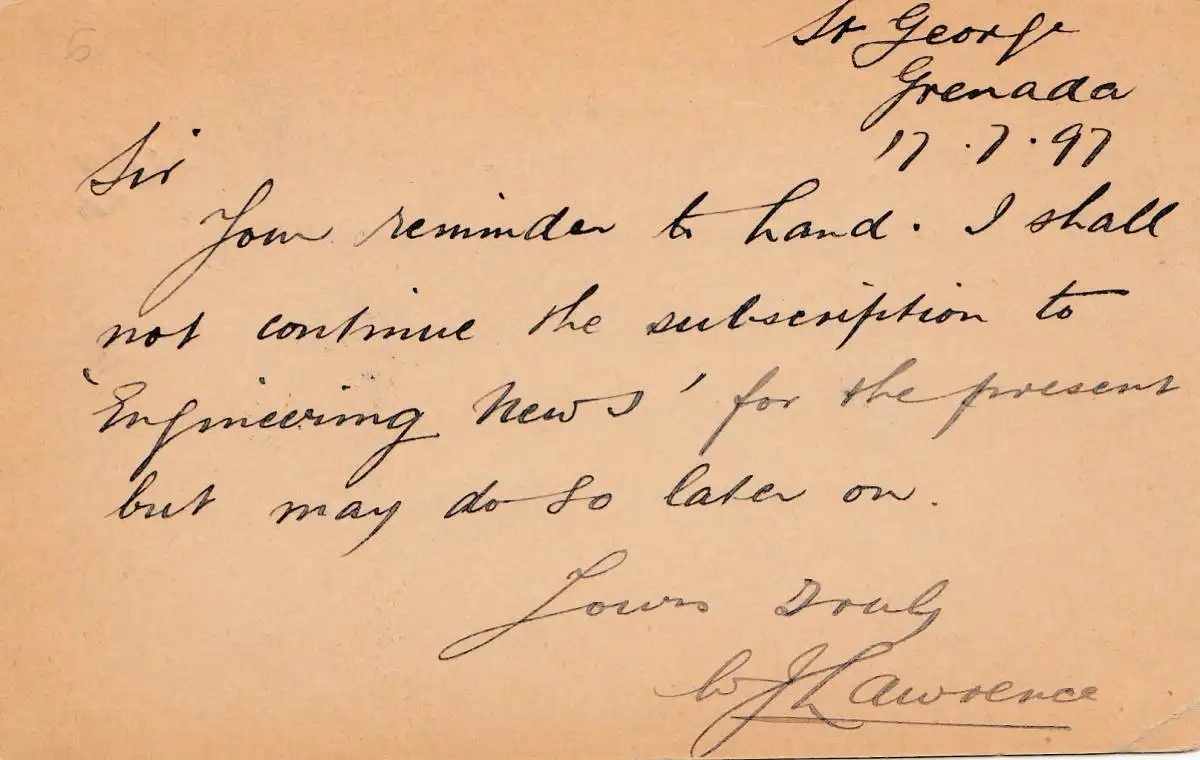 St George
Grenada
17.7.97
Sir
Your reminder to hand. I shall
not continue the subscription to
'Engineering News' for the present
but may do so later on.
Yours Truly
W J Lawrence